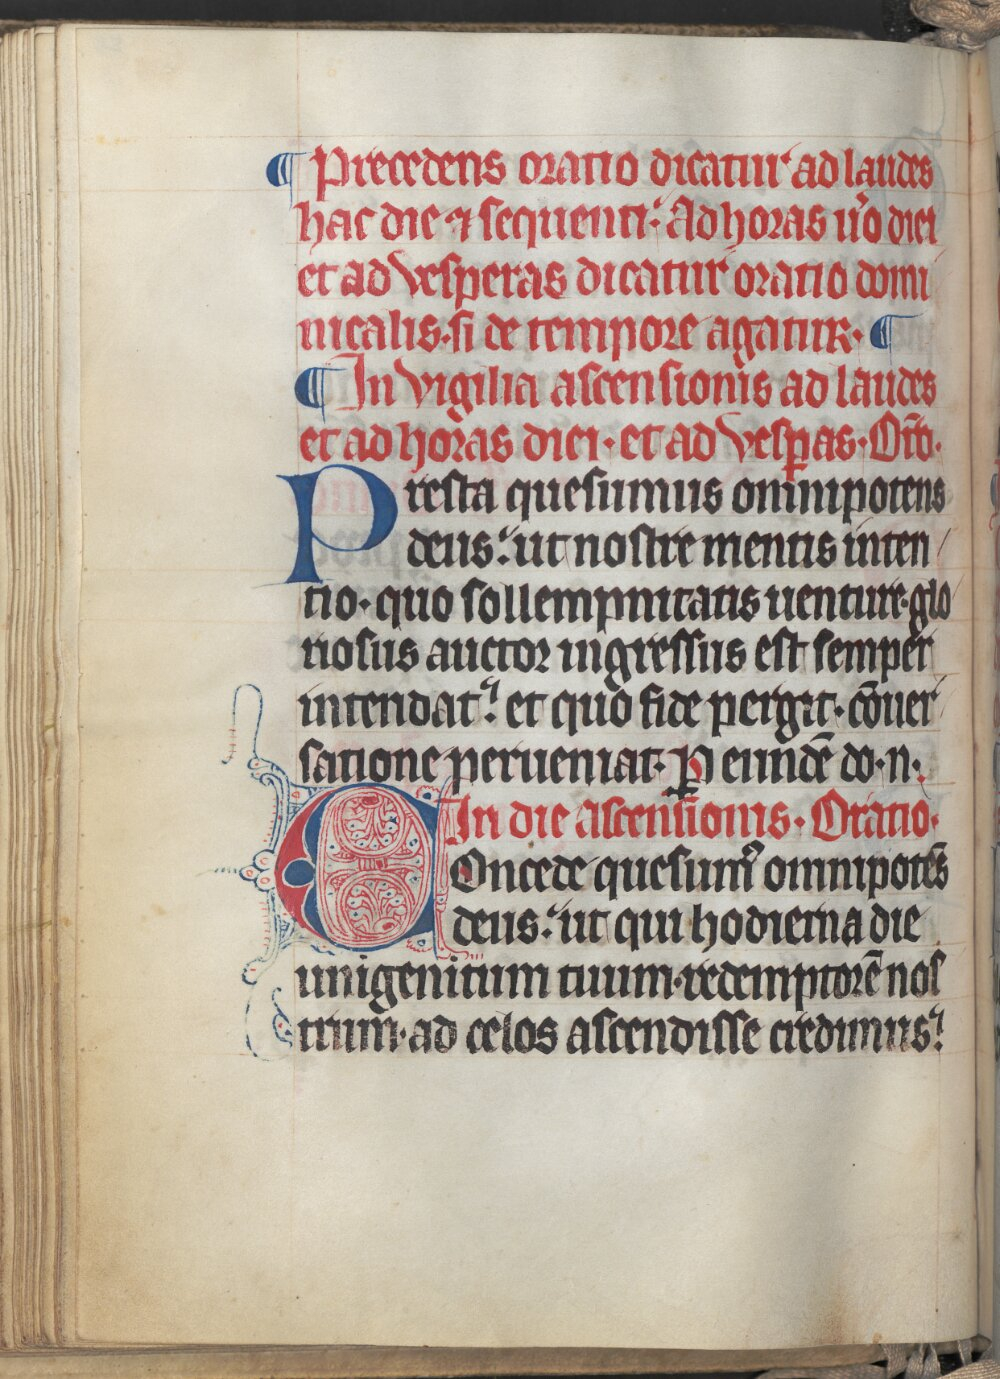 ¶ Precedens oratio dicatur ad laudes
hac die ⁊ sequenti. Ad horas u̅o diei
et ad vesperas dicatur oratio domi
nicalis. si de tempore agatur. ¶
¶ In vigilia ascensionis ad laudes
et ad horas diei. et ad vesꝑas. Or̅o.
Presta quesumus omnipotens
deus. ut nostre mentis inten
tio. quo sollempnitatis uenture. glo
riosus auctor ingressus est semper
intendat. et quo fide pergit. co̅uer
satione perueniat. P eunde̅ do. n.
In die ascensionis. Oratio.
Concede quesumꝰ omnipote̅s
deus. ut qui hodierna die
unigenitum tuum. redemptore̅ nos
trum. ad celos ascendisse credimus.